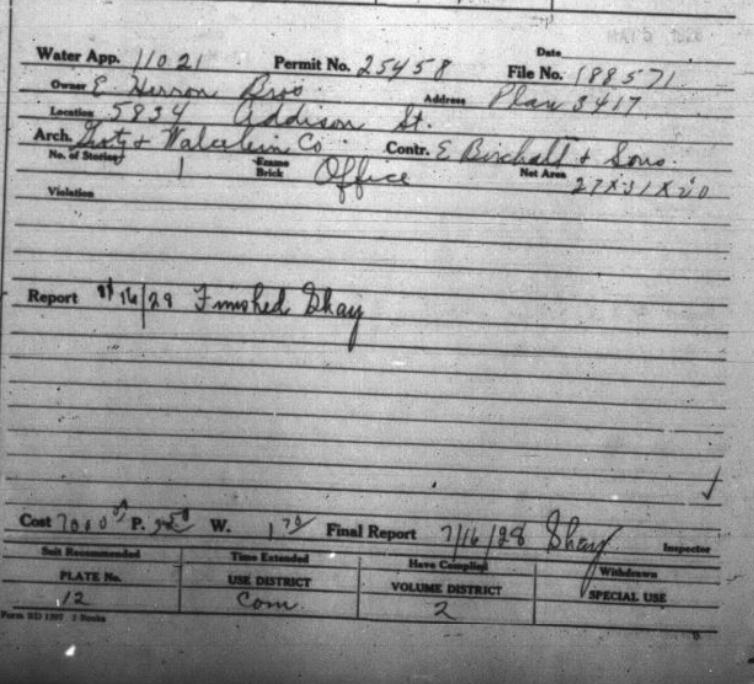 Date
Water App. 11021 Permit No. 25458 File No. 188571
Owner E Herron Bros Address Plan 3417
Location 5834 Addison St.
Arch. & Co Contr. E Birchall & Sons.
No. of Stories 1 Frame Brick Office Net Area 27X31X20
Violation
Report 7/16/28 Finished Shay
Cost 7000 P. W. 1 70 Final Report 7/16/28 Shay Inspector
Suit Recommended Time Extended Have Complied Withdrawn
PLATE No. USE DISTRICT VOLUME DISTRICT SPECIAL USE
12 Com 2